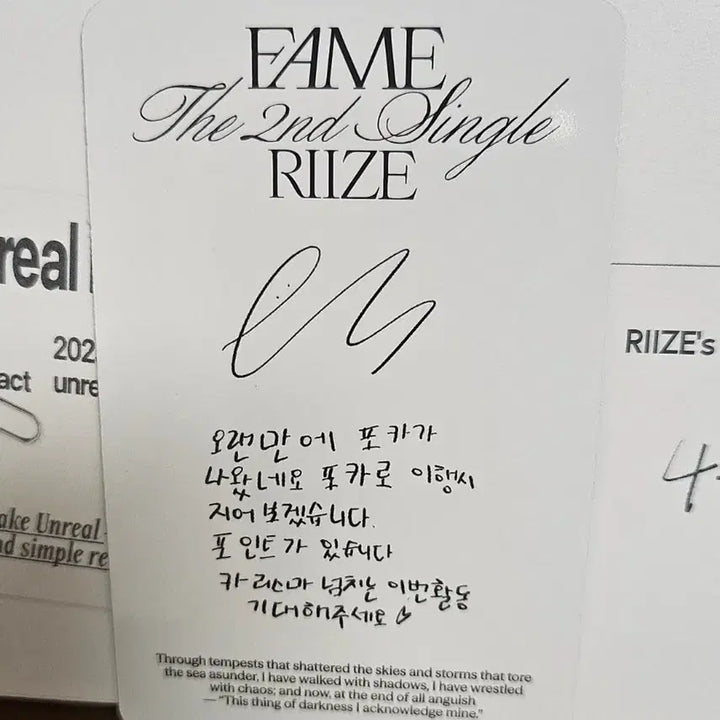 FAME
The 2nd Single
RIIZE
오랜만에 포카가
나왔네요 포카로 이행시
지어보겠습니다.
포인트가 있습니다
카리스마 넘치는 이번활동
기대해주세요
Through tempests that shattered the skies and storms that tore
the sea asunder, I have walked with shadows, I have wrestled
with chaos; and now, at the end of all anguish
— "This thing of darkness I acknowledge mine."
real
202
act unre
ake Unreal
nd simple re
RIIZE's
4